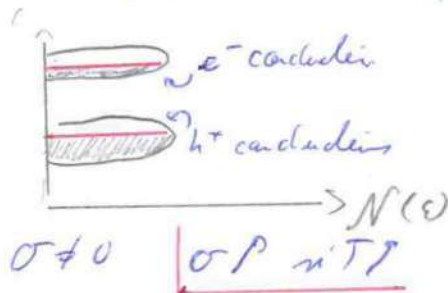 e⁻ conduction
h⁺ conductions
N(ε)
σ ≠ 0 σ ↗ si T ↗